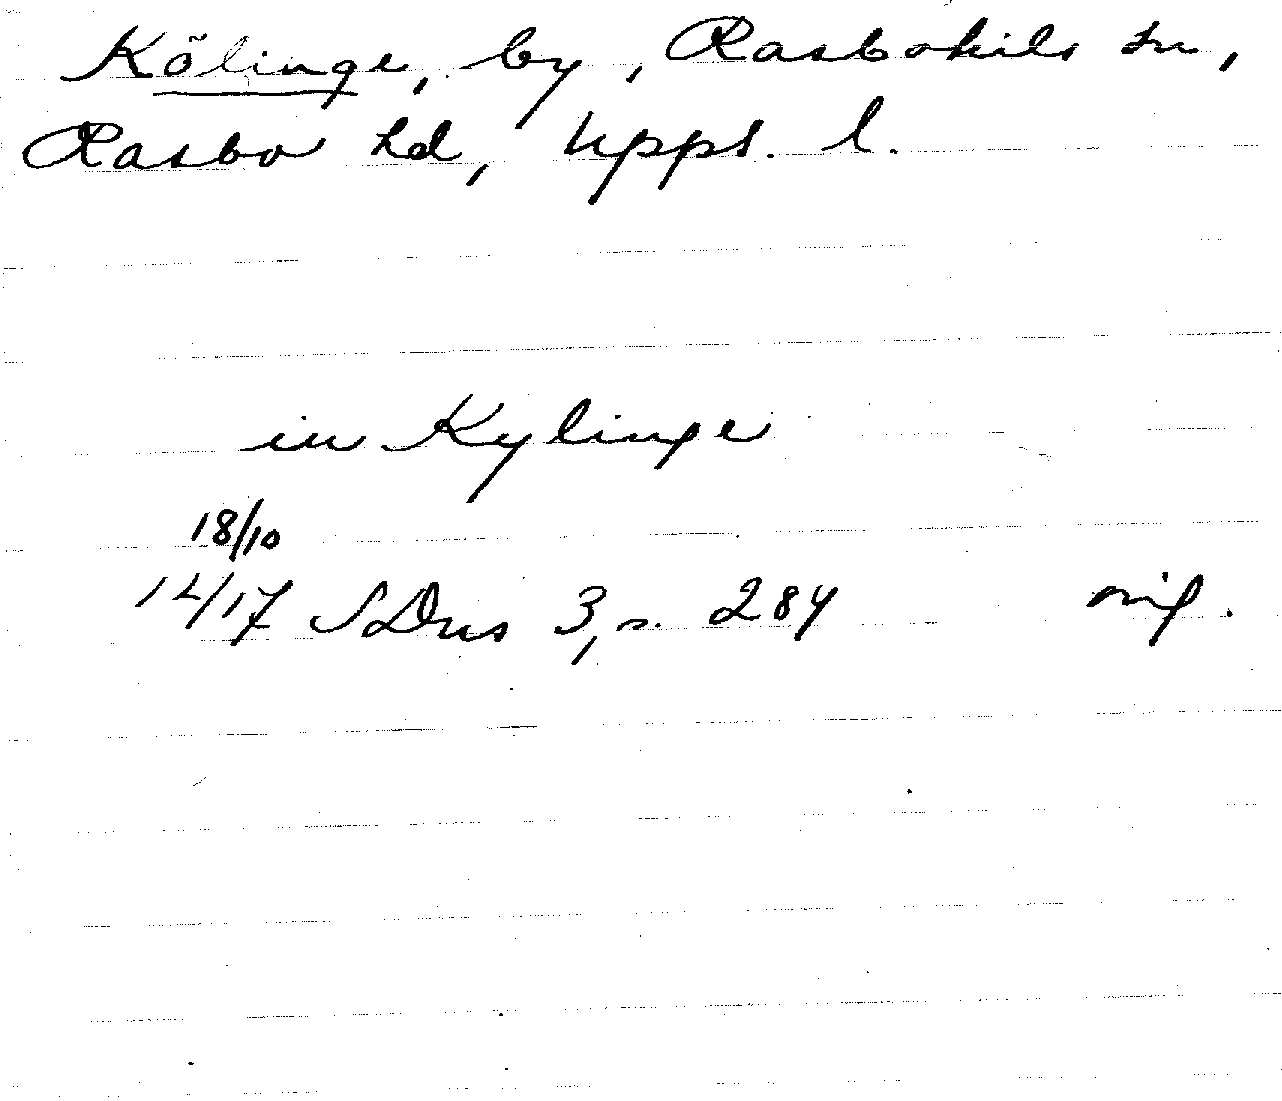 Kölinge, by, Rasbokils sn,
Rasbo hd, Upps. l.
in Kylinge
18/10
1417 SDns 3, s. 284 orig.